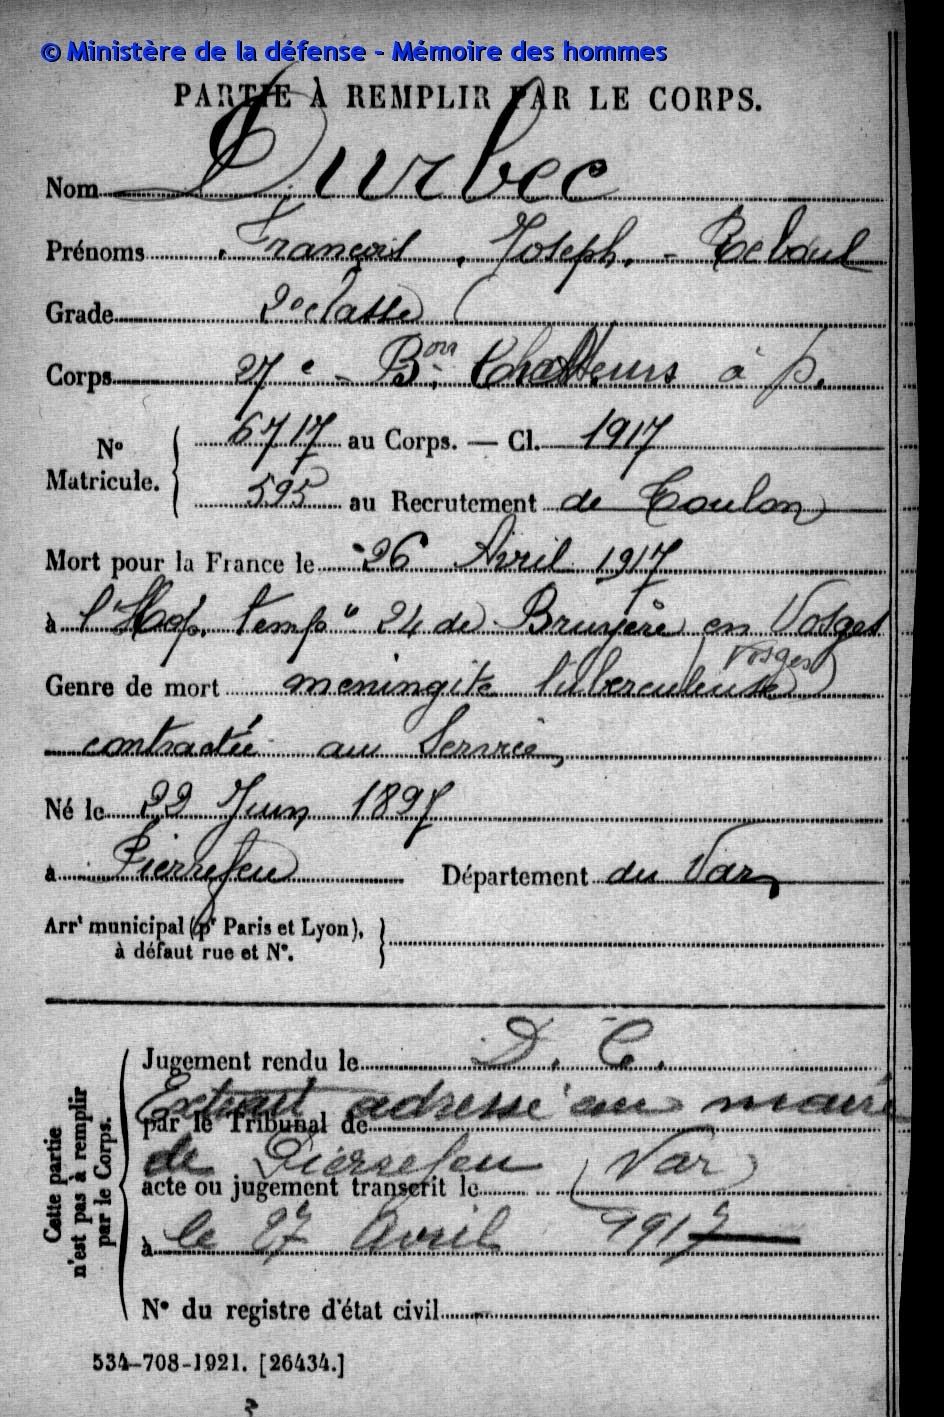 © Ministère de la défense - Mémoire des hommes
PARTIE À REMPLIR PAR LE CORPS.
Nom Durbec
Prénoms François, Joseph, - Reboul
Grade 2e classe
Corps 27e - Bon Chasseurs à p.
No Matricule. { 6717 au Corps. — Cl. 1917
595 au Recrutement de Toulon
Mort pour la France le 26 Avril 1917
à l'Hôp. temp. 24 de Bruyère en Vosges
Vosges
Genre de mort méningite tuberculeuse
contractée au Service,
Né le 22 Juin 1897
à Pierrefeu Département du Var,
Arrt municipal (pr Paris et Lyon),
à défaut rue et No.
Cette partie n'est pas à remplir par le Corps.
Jugement rendu le D. C.
Extrait adressé au maire
par le Tribunal de
de Pierrefeu (Var)
acte ou jugement transcrit le
à le 27 Avril 1917
No du registre d'état civil
534-708-1921. [26434.]